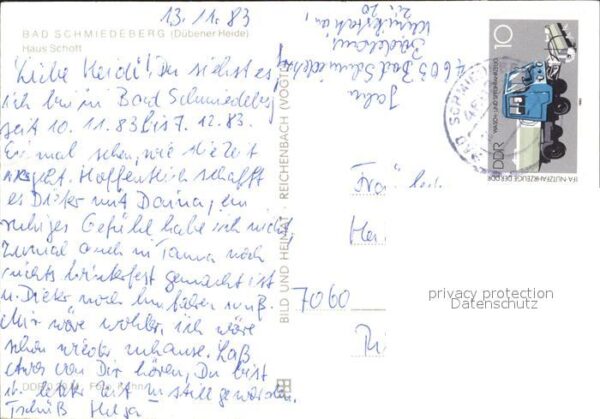 13.11.83
BAD SCHMIEDEBERG (Dübener Heide)
Haus Schott
Liebe Heidi! Du siehst es,
ich bin in Bad Schmiedeberg
seit 10.11.83 bis 7.12.83.
Einmal sehen, wie die Zeit
vergeht. Hoffentlich schafft
es Dieter mit Daina, ein
ruhiges Gefühl habe ich nicht,
zumal auch in Tanna noch
nichts winterfest gemacht ist
u. Dieter noch hinfahren muß.
Mir wäre wohler, ich wäre
schon wieder zuhause. Laß
etwas von Dir hören, Du bist
in letzter Zeit so still geworden.
Tschüß Helga
DDR
BILD UND HEIMAT · REICHENBACH (VOGTL)
Jahn
4603 Bad Schmiedeberg
Zi. 20
10
DDR
WASCH- UND SPRENGFAHRZEUG
IFA-NUTZFAHRZEUGE DER DDR
BAD SCHMIED
Frau
7060
privacy protection
Datenschutz